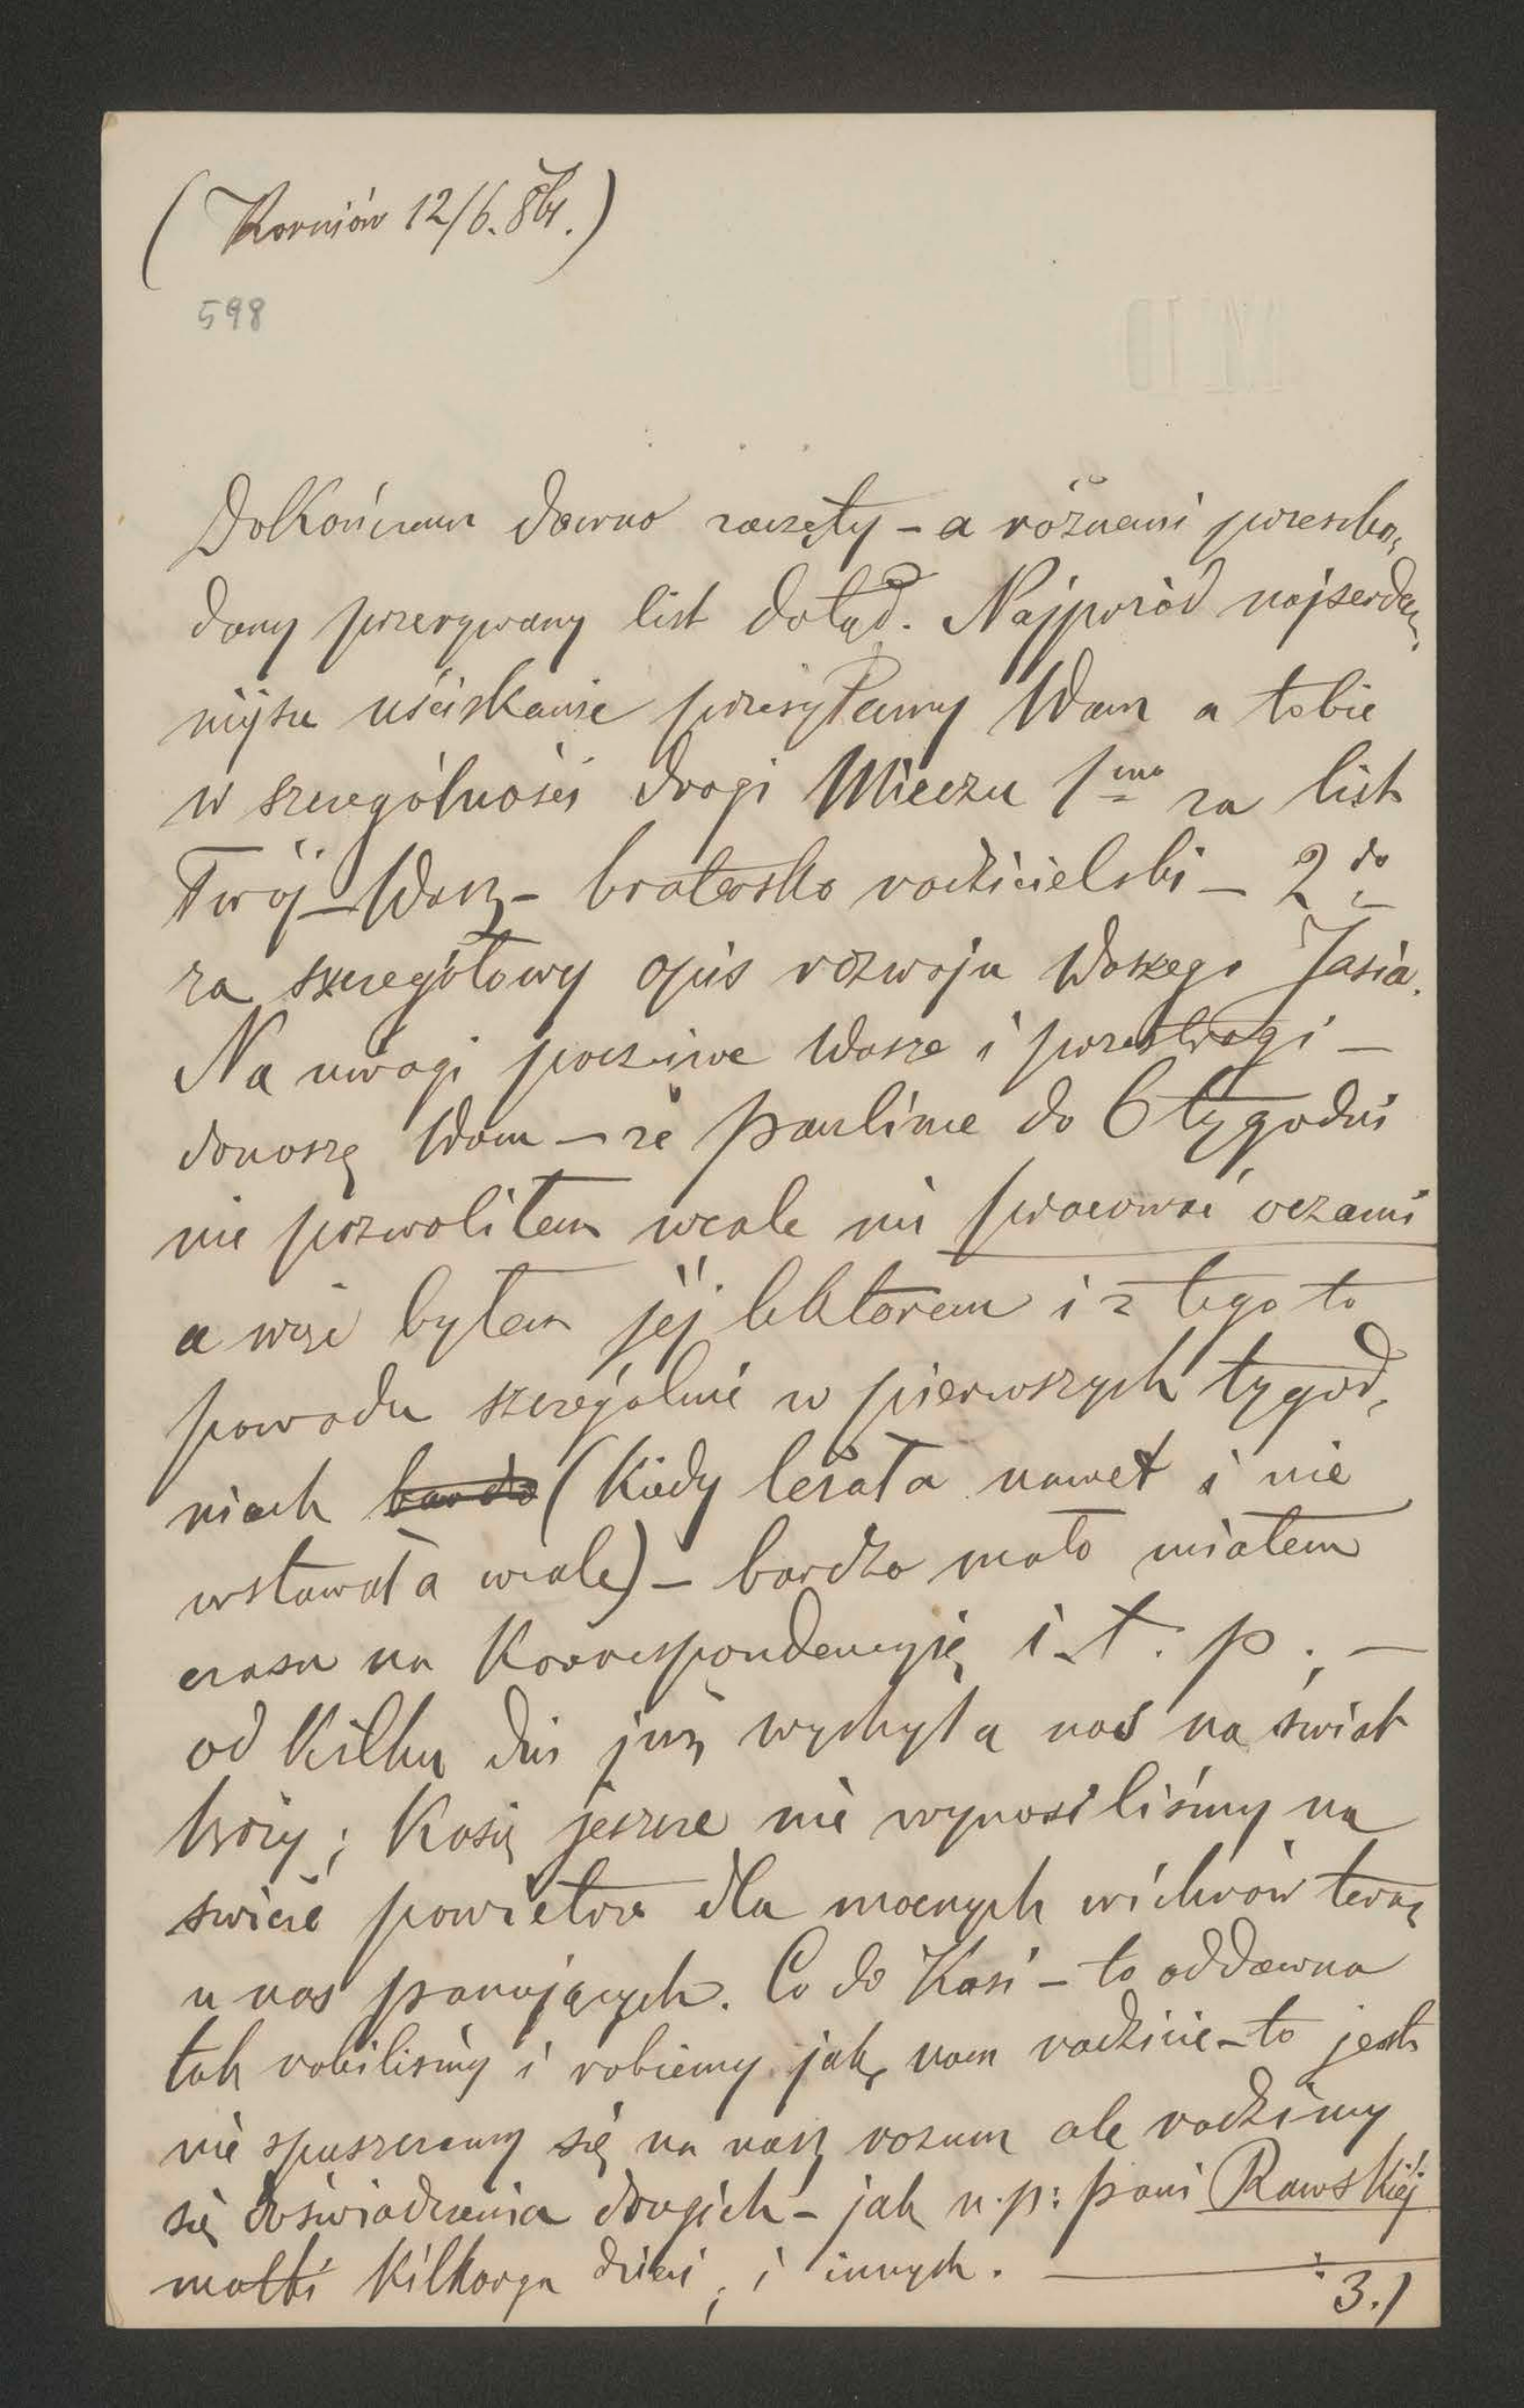 ( Korniów 12/6. 84. )
598
Dokończam dawno zaczęty – a różnemi przeszko„
dany przerywany list dotąd. Najprzód najserdecz„
niejsze uściskanie przesyłamy Wam a tobie
w szczególności drogi Mieczu 1mo za list
Twój – Wasz – bratersko rodzicielski – 2do
za szczegółowy opis rozwoju Waszego Jasia.
Na uwagi poczciwe Wasze i przestrogi –
donoszę Wam – że Paulinie do 6 tygodni
nie pozwoliłem wcale nic pracować oczami
a więc byłem jej lektorem i z tego to
powodu szczególnie w pierwszych tygod„
niach bardzo (kiedy leżała nawet i nie
wstawała wcale) – bardzo mało miałem
czasu na Korrespondencyję i.t.p. –
od kilku dni już wychyla nos na świat
boży; Kasię jeszcze nie wynosiliśmy na
świeże powietrze dla mocnych wichrów teraz
u nas panujących. Co do Kasi – to oddawna
tak robiliśmy i robiemy jak nam radzicie – to jest
nie spuszczamy się na nasz rozum ale radzimy
się doświadczenia drugich – jak n.p: pani Rawskiéj
matki kilkorga dzieci, i innych. —
3.)